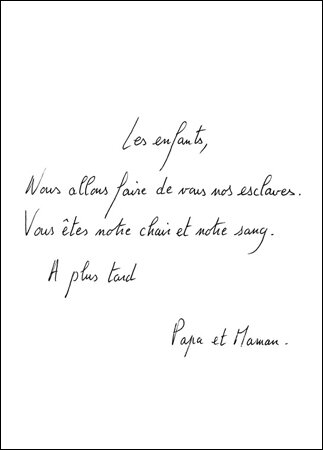 Les enfants,
Nous allons faire de vous nos esclaves.
Vous êtes notre chair et notre sang.
A plus tard
Papa et Maman.